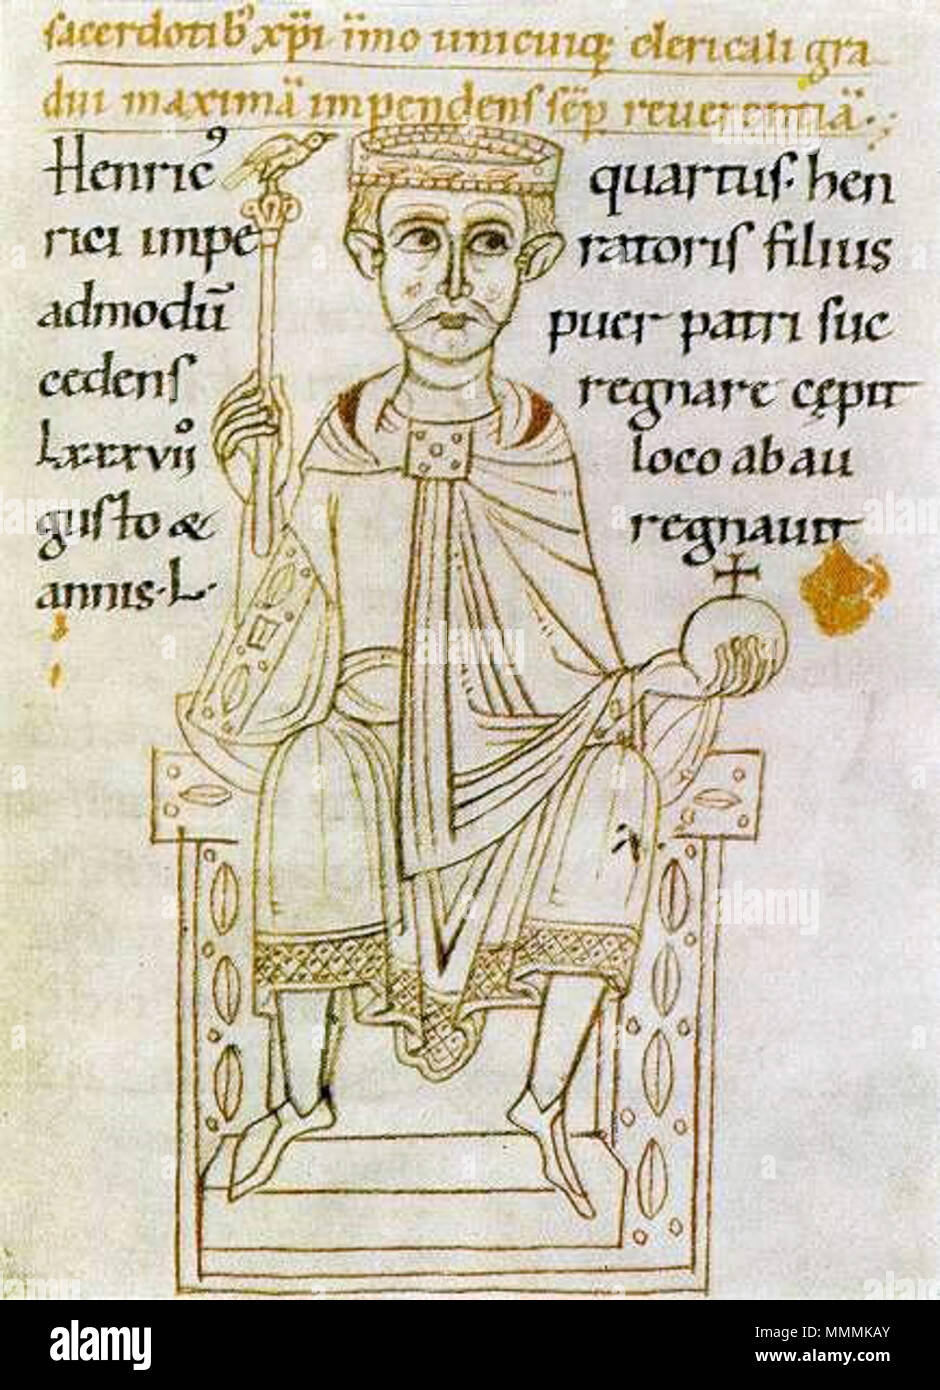 sacerdotib' xp̄i īmo unicuiq; clericali gra
dui maximā impendens sēp reuerentiā.
Henric' quartus. hen
rici impe ratoris filius
admodū puer patri suc
cedens regnare cępit
Lxxxvijº loco ab au
gusto & regnauit
annis. L.
alamy
alamy
Image ID: MMMKAY
www.alamy.com